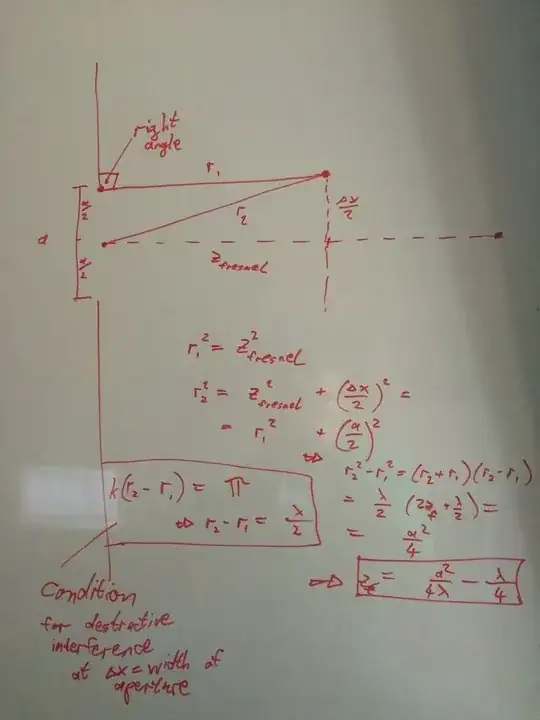 right
angle
r₁
a/2
Δx/2
r₂
a
a/2
z_fresnel
r₁² = z²_fresnel
r₂² = z²_fresnel + (Δx/2)² =
= r₁² + (a/2)²
⇒ r₂² - r₁² = (r₂ + r₁)(r₂ - r₁)
= λ/2 (2z_f + λ/2) =
= a²/4
⇒ z_f = a²/4λ - λ/4
k(r₂ - r₁) = π
⇒ r₂ - r₁ = λ/2
Condition
for destructive
interference
at Δx = width of
aperture